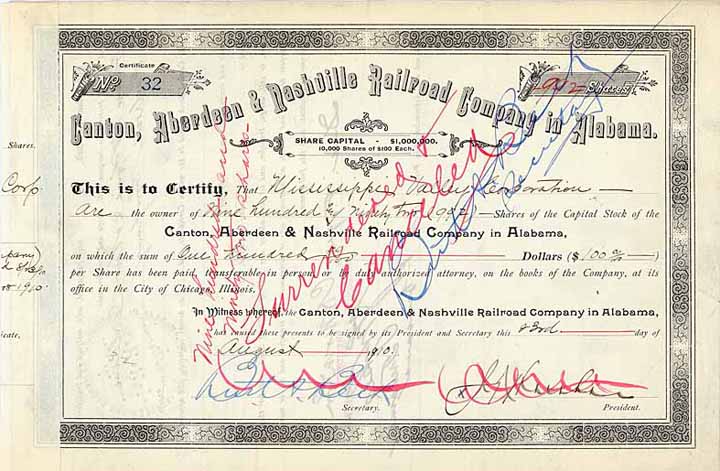 Certificate
No 32
992 Shares
Canton, Aberdeen & Nashville Railroad Company in Alabama.
SHARE CAPITAL - $1,000,000.
10,000 Shares of $100 Each.
Shares.
Corp
This is to Certify, That Mississippi Valley Corporation
are the owner of Nine hundred & Ninety two 992 Shares of the Capital Stock of the
Canton, Aberdeen & Nashville Railroad Company in Alabama,
on which the sum of One hundred Dollars ($ 100 00/100)
per Share has been paid, transferable in person or by duly authorized attorney, on the books of the Company, at its
office in the City of Chicago, Illinois.
In Witness whereof, the Canton, Aberdeen & Nashville Railroad Company in Alabama,
has caused these presents to be signed by its President and Secretary this 23rd day of
August 1910.
Secretary. President.
Nine hundred and
Ninety two shares.
Surrendered &
Cancelled
Secretary
pany)
1910.
icate,